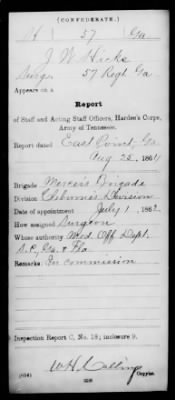 (CONFEDERATE.)
H 57 Ga
J W Hicks
Surge. 57 Regt Ga
Appears on a
Report
of Staff and Acting Staff Officers, Hardee's Corps,
Army of Tennessee.
Report dated East Point, Ga
Aug 22, 1864
Brigade Mercer's Brigade
Division Cleburne's Division
Date of appointment July 1, 1862
How assigned Surgeon
Whose authority Med. Off. Dept.
S.C., Ga. & Fla
Remarks: In commission
Inspection Report C, No. 18; inclosure 9.
Copyist.